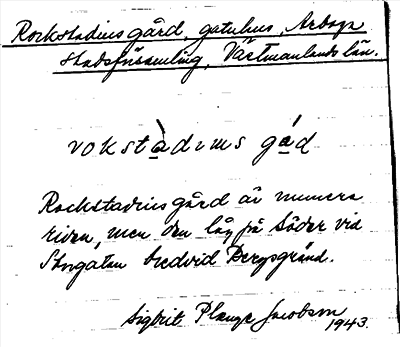 Rockstadius gård, gatuhus, Arboga
stadsförsamling, Västmanlands län.
rokstàdιus gá̱d
Rockstadius gård är numera
riven, men den låg på Söder vid
Storgatan bredvid Bergsgränd.
Sigbrit Plænge Jacobson
1943.